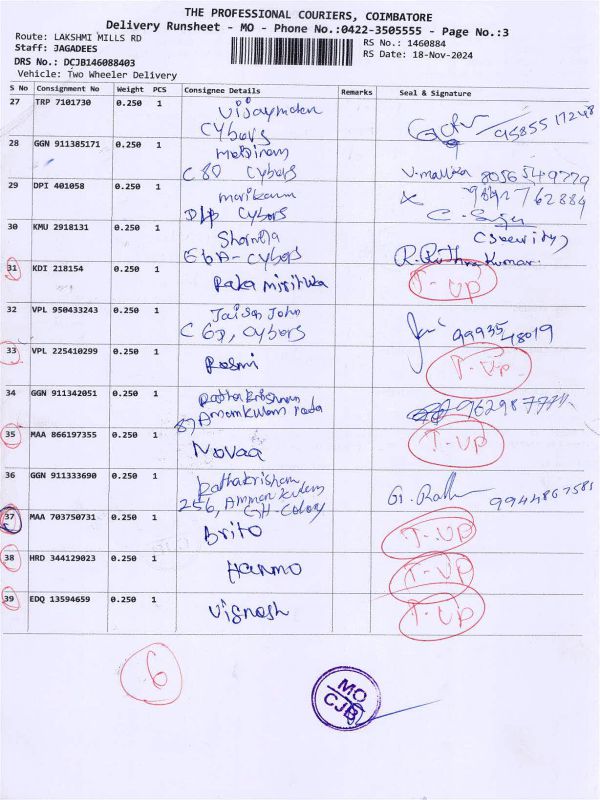 THE PROFESSIONAL COURIERS, COIMBATORE
Delivery Runsheet - MO - Phone No.:0422-3505555 - Page No.:3
Route: LAKSHMI MILLS RD
RS No.: 1460884
Staff: JAGADEES
RS Date: 18-Nov-2024
DRS No.: DCJB146088403
Vehicle: Two Wheeler Delivery
S No Consignment No Weight PCS Consignee Details Remarks Seal & Signature
27 TRP 7101730 0.250 1
Cybers
28 GGN 911385171 0.250 1
C 80 Cybers
V.mallika 8056549779
29 DPI 401058 0.250 1
x 9892762884
Cybers
30 KMU 2918131 0.250 1
Sharmila
(Security)
Cybers
R.Ruthrakumar.
31 KDI 218154 0.250 1
T-UP
32 VPL 950433243 0.250 1
Jaison John
Cybers
99935 48019
33 VPL 225410299 0.250 1 Rosmi T-UP
34 GGN 911342051 0.250 1
Rathakrishnan
35 MAA 866197355 0.250 1 Novaa T-UP
36 GGN 911333690 0.250 1
256, Amman kulam
G. 9944867581
37 MAA 703750731 0.250 1 Brito T-UP
38 HRD 344129023 0.250 1 T-UP
39 EDQ 13594659 0.250 1 T-UP
6
MO
CJB